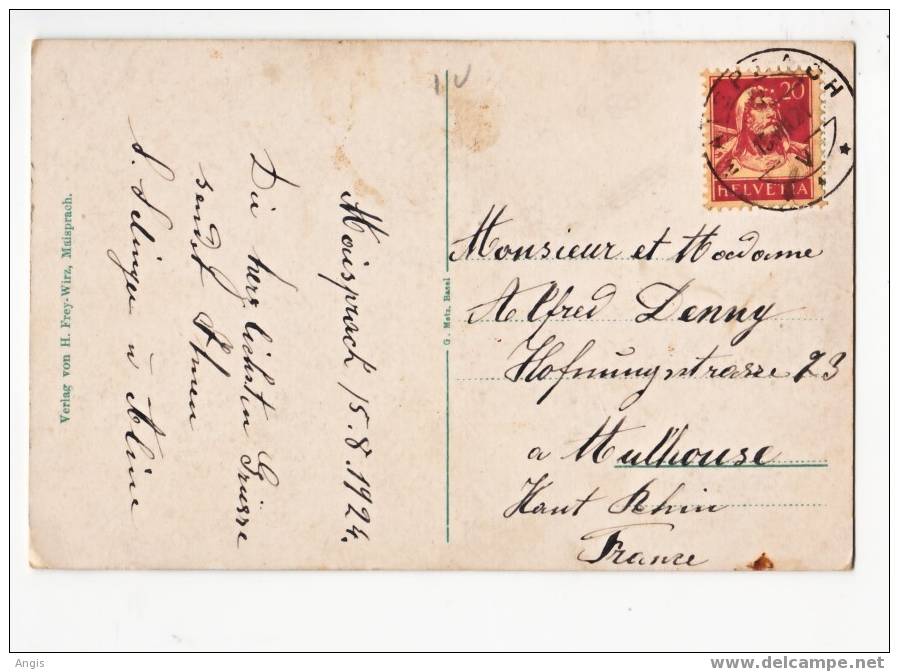 Verlag von H. Frey-Wirz, Maisprach.
Maisprach 15.8.1924.
Die herzlichsten Grüsse
sendet Ihnen
u Aline
G. Metz, Basel
20
HELVETIA
Monsieur et Madame
Alfred Denny
Hofnungstrasse 23
a Mulhouse
Haut Rhin
France
Angis
www.delcampe.net